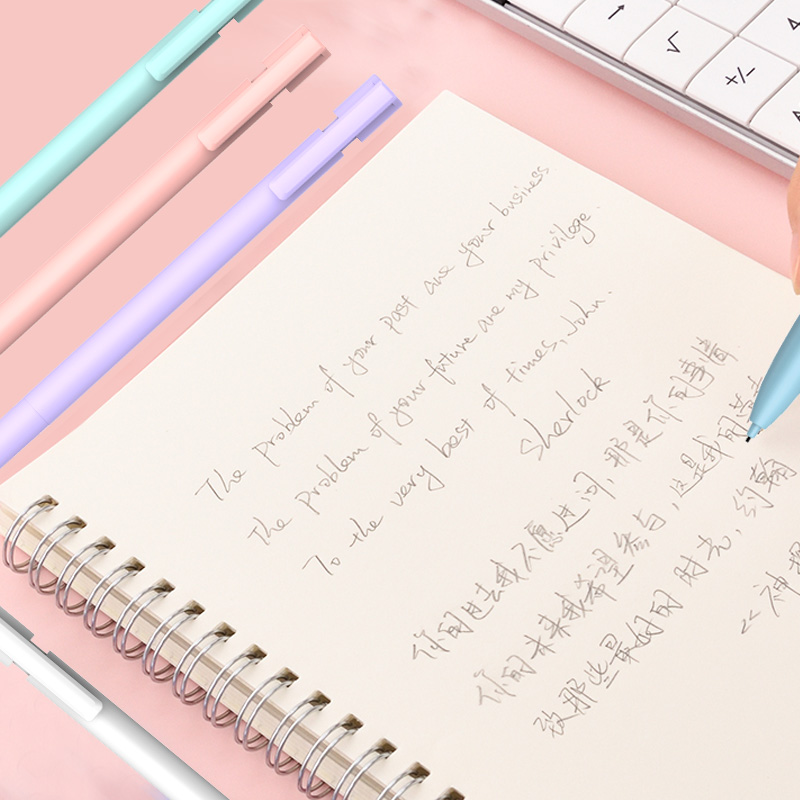 The problem of your past are your business
the problem of your future are my privilege.
To the very best of times, John.
Sherlock
你的过去我不愿过问，那是你的事情.
你的未来我希望参与，这是我的荣
致那些最好的时光，约翰
<<神探
↑
√
+/-